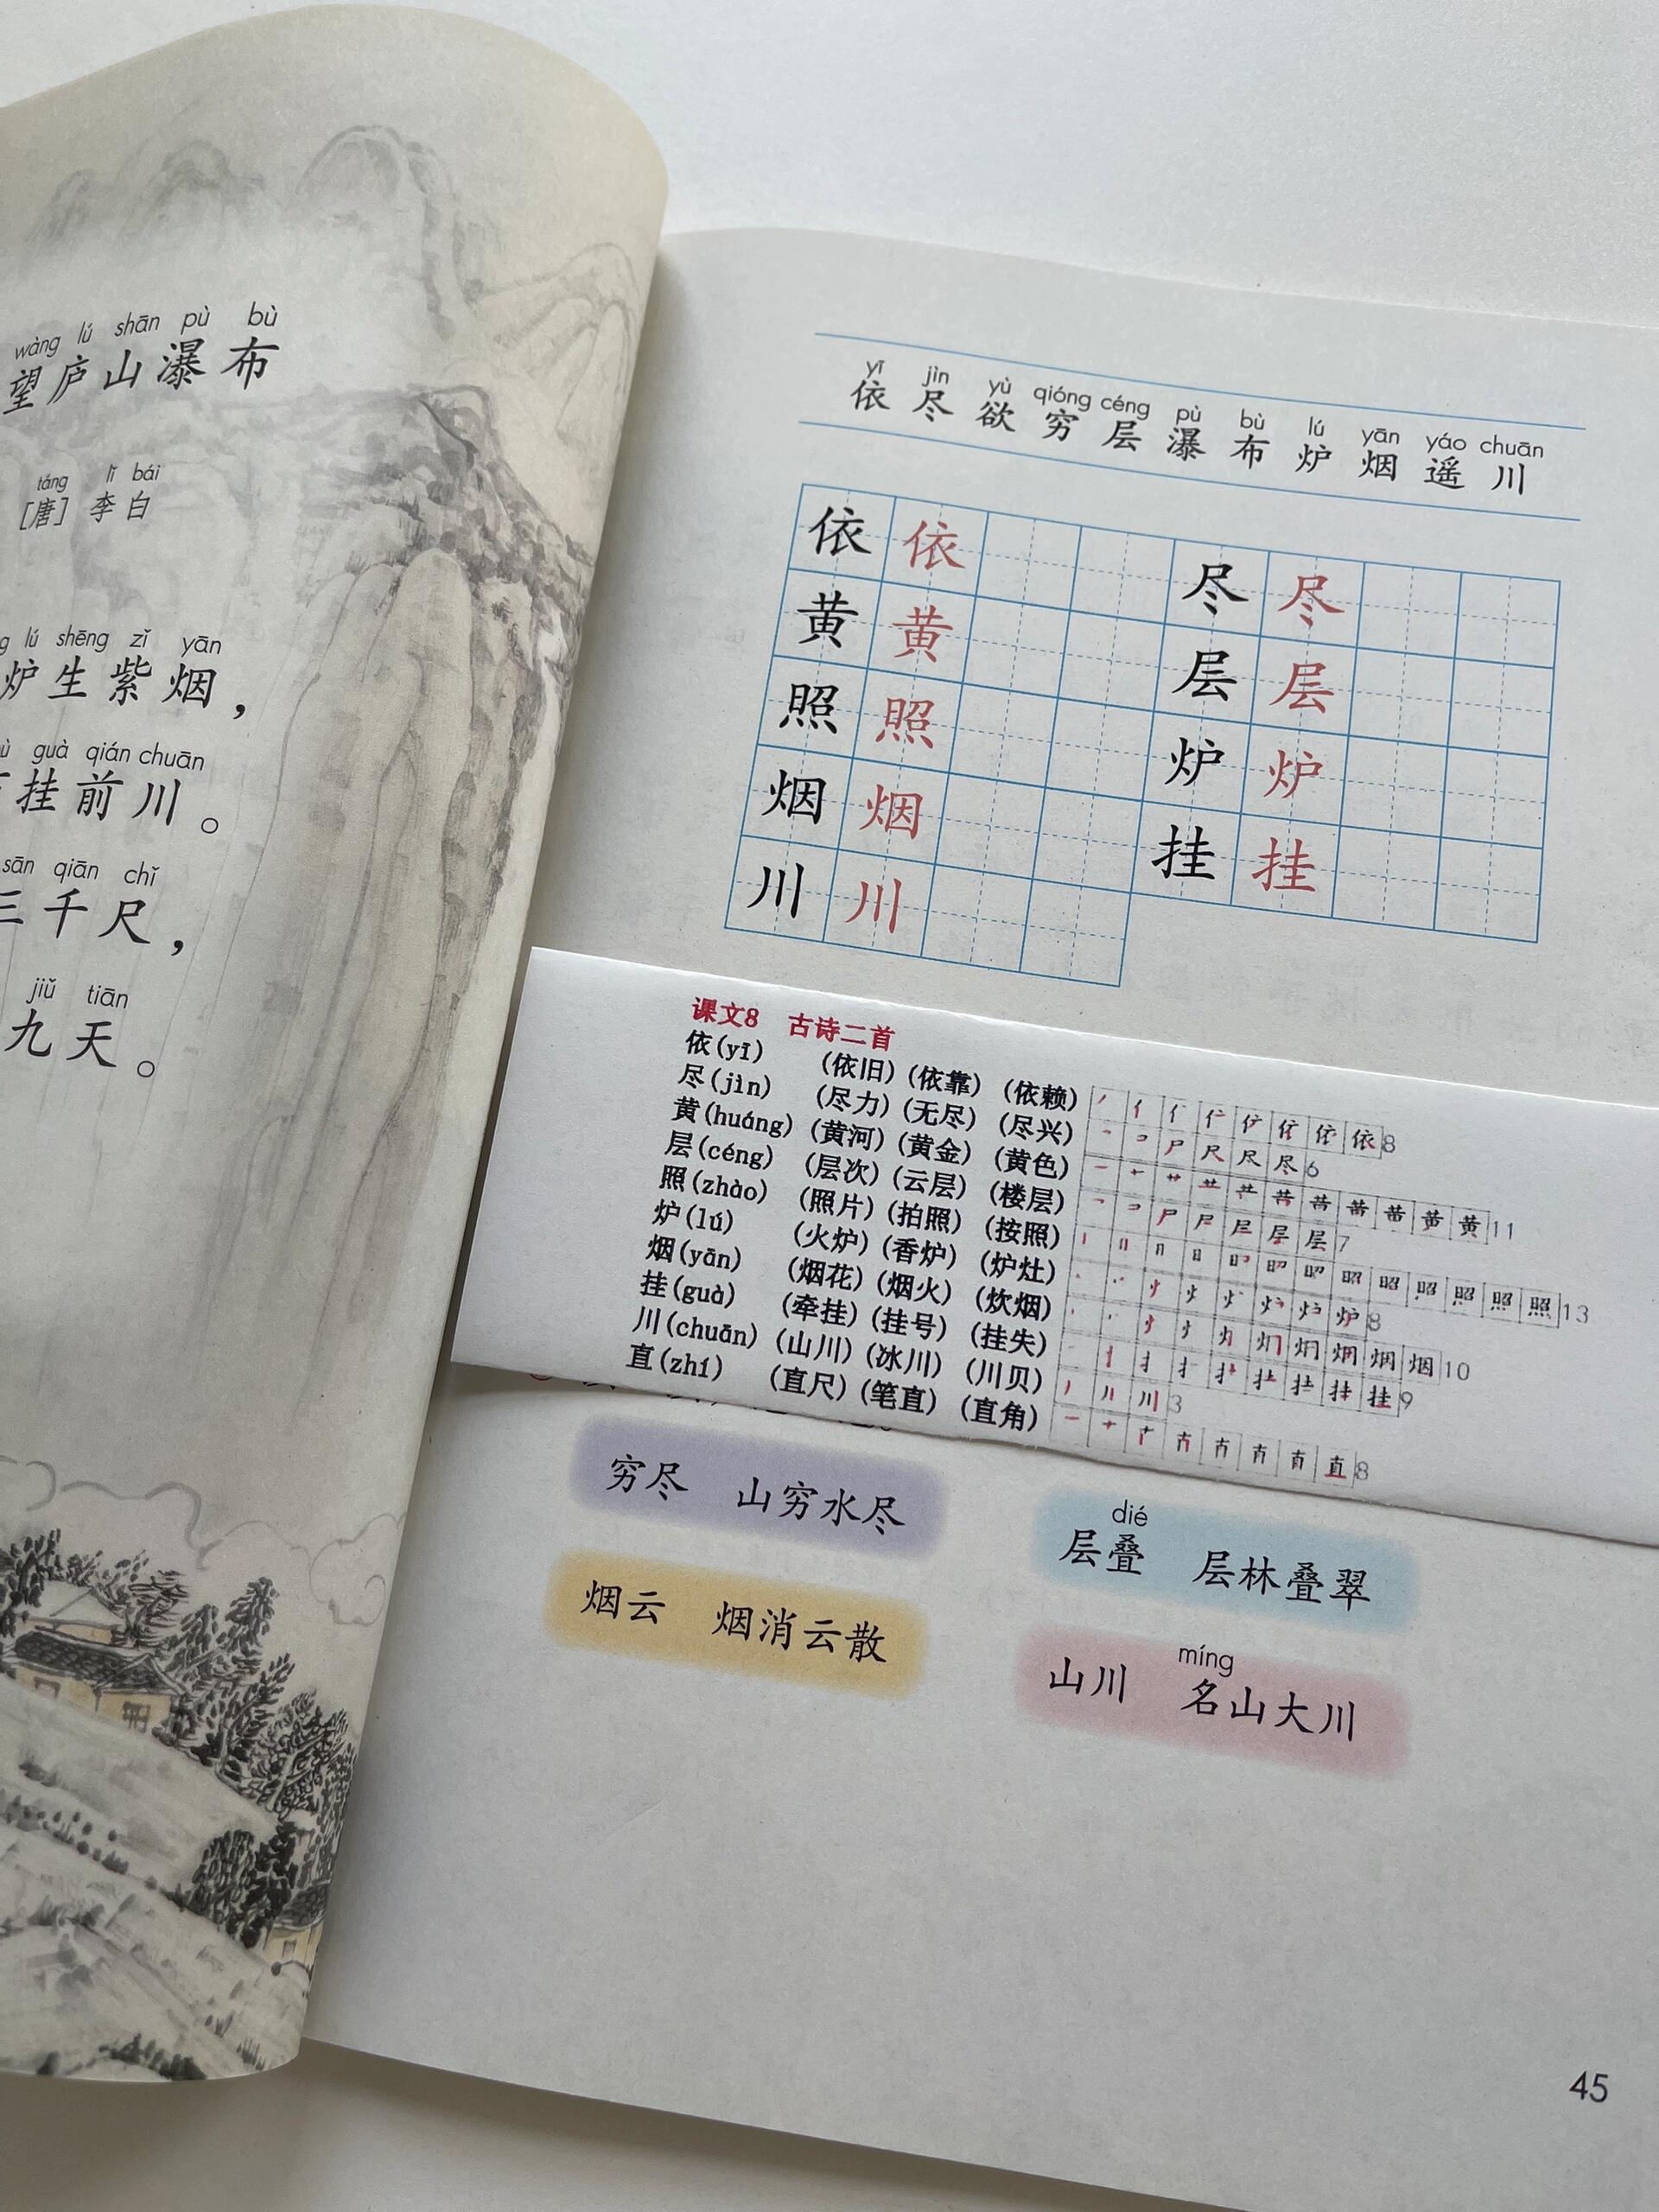 wàng lú shān pù bù
望庐山瀑布
táng lǐ bái
[唐] 李白
lú shēng zǐ yān
炉生紫烟，
guà qián chuān
挂前川。
sān qiān chǐ
三千尺，
jiǔ tiān
九天。
yī jìn yù qióng céng pù bù lú yān yáo chuān
依 尽 欲 穷 层 瀑 布 炉 烟 遥 川
依 依 尽 尽
黄 黄 层 层
照 照 炉 炉
烟 烟 挂 挂
川 川
课文8 古诗二首
依(yī) (依旧) (依靠) (依赖) 8
尽(jìn) (尽力) (无尽) (尽兴) 6
黄(huáng) (黄河) (黄金) (黄色) 11
层(céng) (层次) (云层) (楼层) 7
照(zhào) (照片) (拍照) (按照) 13
炉(lú) (火炉) (香炉) (炉灶) 8
烟(yān) (烟花) (烟火) (炊烟) 10
挂(guà) (牵挂) (挂号) (挂失) 9
川(chuān) (山川) (冰川) (川贝) 3
直(zhí) (直尺) (笔直) (直角) 8
穷尽 山穷水尽
dié
层叠 层林叠翠
烟云 烟消云散
míng
山川 名山大川
45